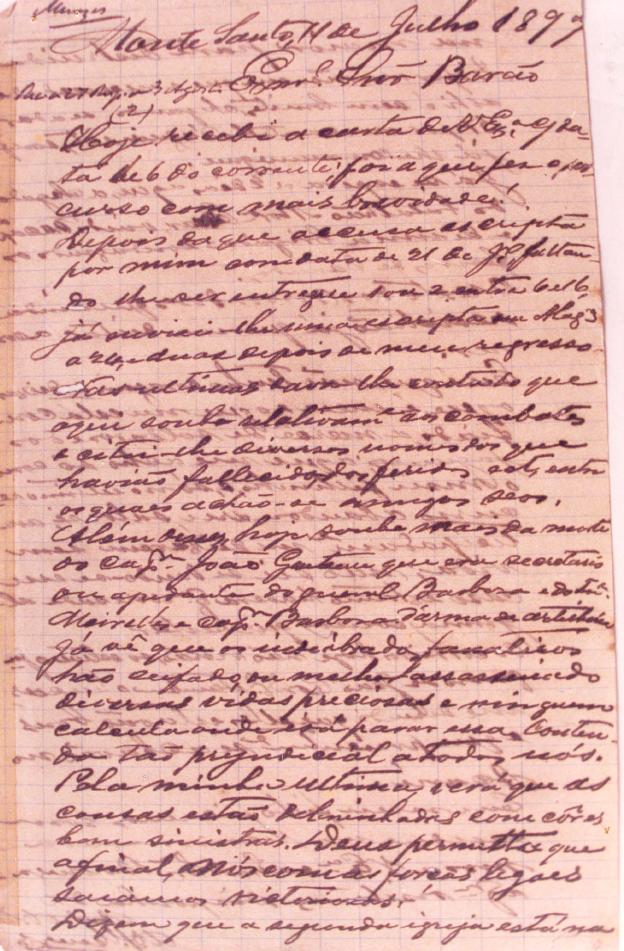 Menezes
Monte Santo, 11 de Julho 1897
Exmº. Snr. Barão
(2)
Hoje recebi a carta de V. Exª. da-
ta de 6 do corrente; foi a que fez o per-
curso com mais brevidade.
Depois da que accusa escripta
por mim com data de 21 de faltan-
do lhe ser entregue 1 ou 2 entre 6 e 16,
já enviei-lhe uma escripta em
a 24, e duas depois de meu regresso
Nas ultimas lhe contado que
aqui soube relativamᵉ aos combates
e citei-lhe diversos nomes dos que
havião fallecido, dos feridos etc, entre
os quaes achão-se amigos seos.
Além hoje soube mais da morte
do capᵐ. João que era secretario
ou ajudante do general Barbosa e do
Meirelles e capᵐ. Barbosa d'arma de artilharia
Já vê que os fanaticos
hão ceifado, ou melhor assassinado
diversas vidas preciosas e ninguem
calcula onde irá parar essa conten-
da tão prejudicial a todos nós.
Pela minha ultima, verá que as
cousas estão com côres
bem sinistras. Deus permitta que
afinal, nós com as forças legaes
saiamos victoriosos.
Dizem que a segunda igreja está na